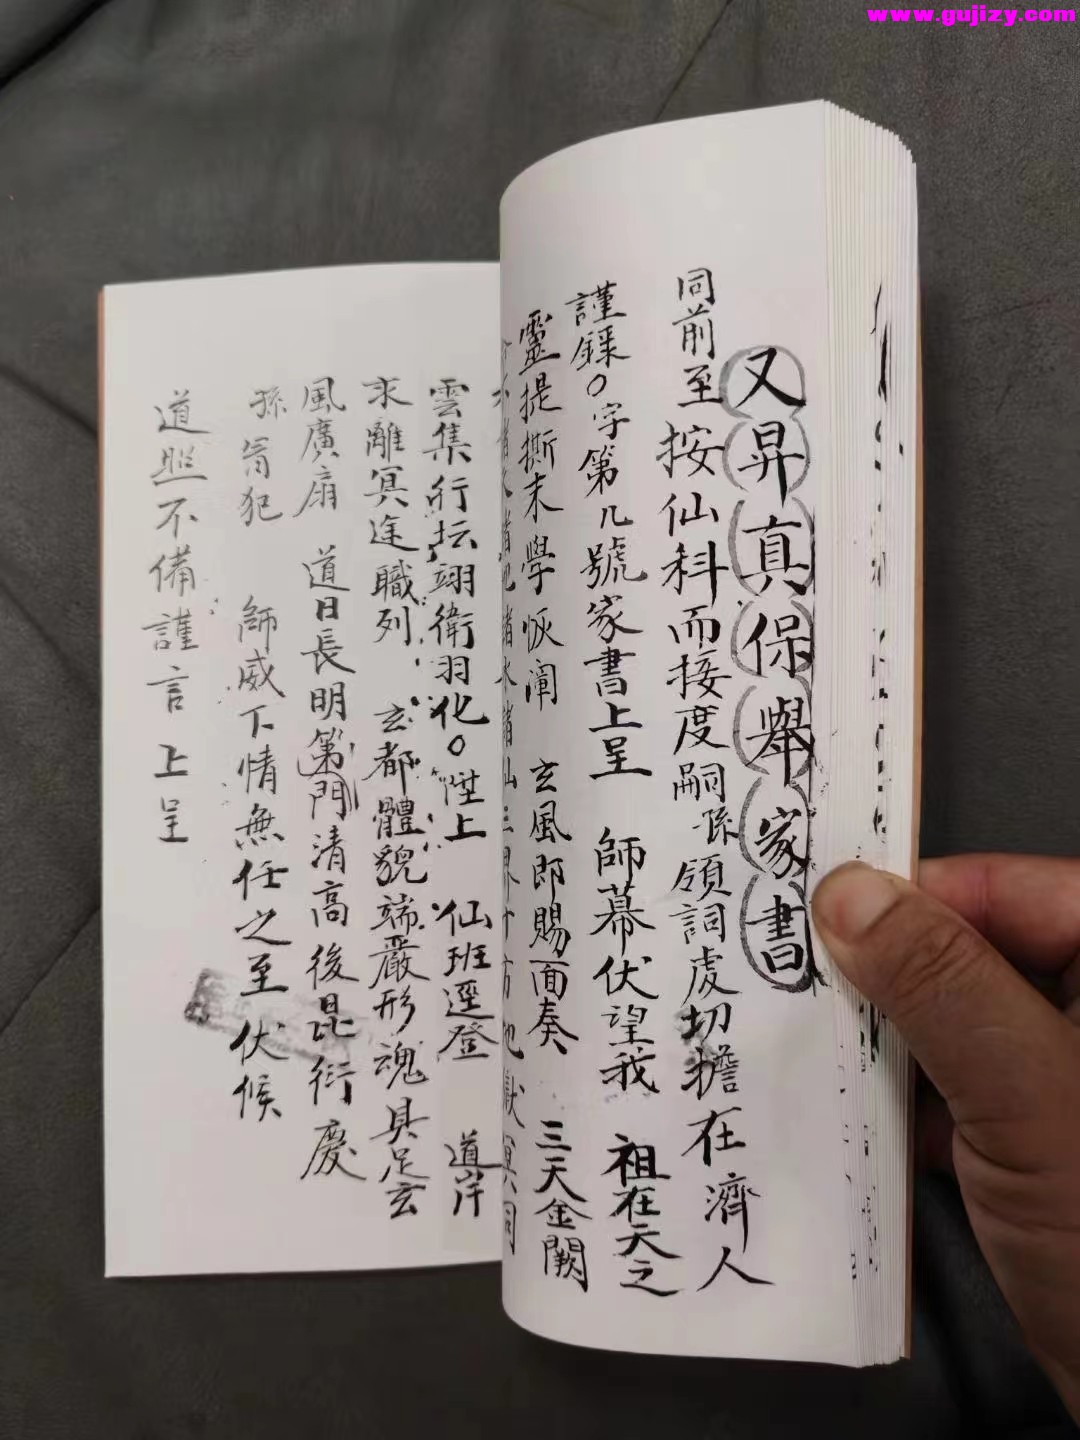 www.gujizy.com
又昇真保舉家書
同前至按仙科而接度嗣孫領詞虔切擔在濟人
謹錄〇字第几號家書上呈 師幕伏望我 祖在天之
靈提撕末學恢闡 玄風即賜面奏 三天金闕
水諸仙三界十方地獄冥洞
雲集行坛翊衛羽化〇陞上 仙班逕登 道岸
求離冥途職列 玄都體貌端嚴形魂具足玄
風廣扇 道日長明第門清高後昆衍慶
孫胥犯 師威下情無任之至伏候
道照不備謹言上呈